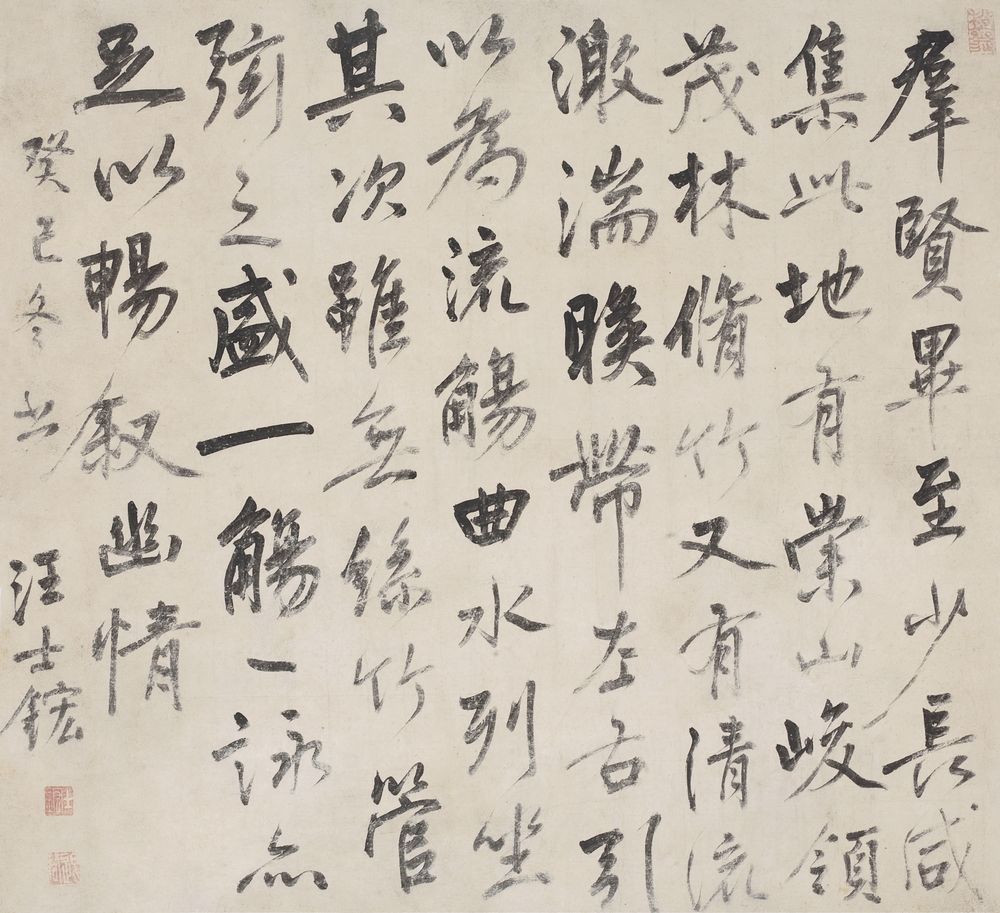 羣賢畢至少長咸
集此地有崇山峻領
茂林脩竹又有清流
激湍暎帶左右引
以為流觴曲水列坐
其次雖無絲竹管
弦之盛一觴一詠亦
足以暢敘幽情
癸巳冬書
汪士鋐